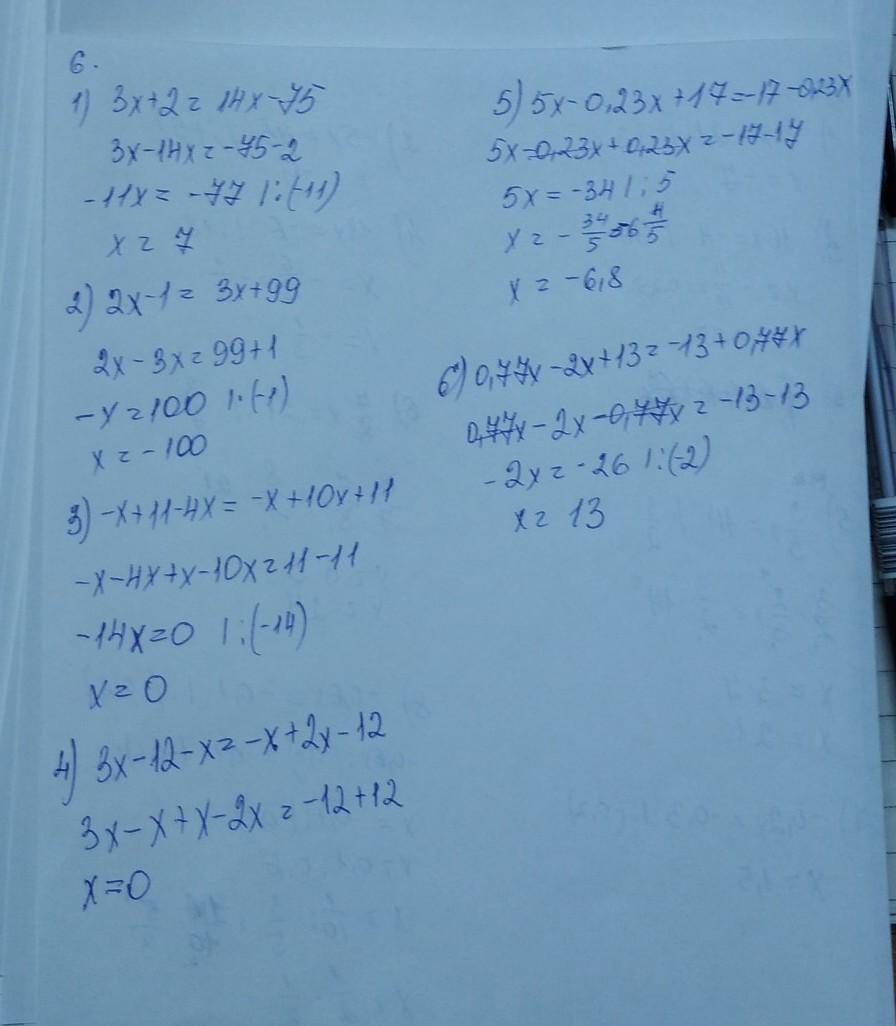 6.
1) 3x+2 = 14x-75
3x-14x = -75-2
-11x = -77 |:(-11)
x = 7
2) 2x-1 = 3x+99
2x-3x = 99+1
-x = 100 |:(-1)
x = -100
3) -x+11-4x = -x+10x+11
-x-4x+x-10x = 11-11
-14x=0 |:(-14)
x = 0
4) 3x-12-x = -x+2x-12
3x-x+x-2x = -12+12
x=0
5) 5x-0,23x+17=-17-0,23x
5x-0,23x+0,23x = -17-17
5x = -34 |:5
x = -34/5 = 6 4/5
x = -6,8
6) 0,77x-2x+13 = -13+0,77x
0,77x-2x-0,77x = -13-13
-2x = -26 |:(-2)
x = 13